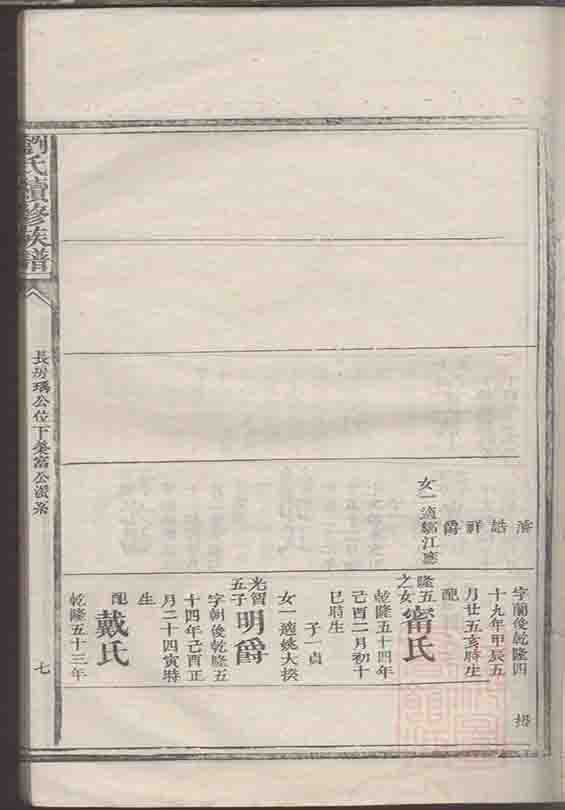 濬
誥
祥
爵
女一適鄒江應
字蘭俊乾隆四
十九年甲辰五
月廿五亥時生
配
甯氏
隆五
之女
乾隆五十四年
己酉二月初十
巳時生
子一貞
女一適姚大揆
光習
五子
明爵
字朝俊乾隆五
十四年己酉正
月二十四寅時
生
配
戴氏
乾隆五十三年
劉氏續修族譜
長房瑀公位下榮富公
七